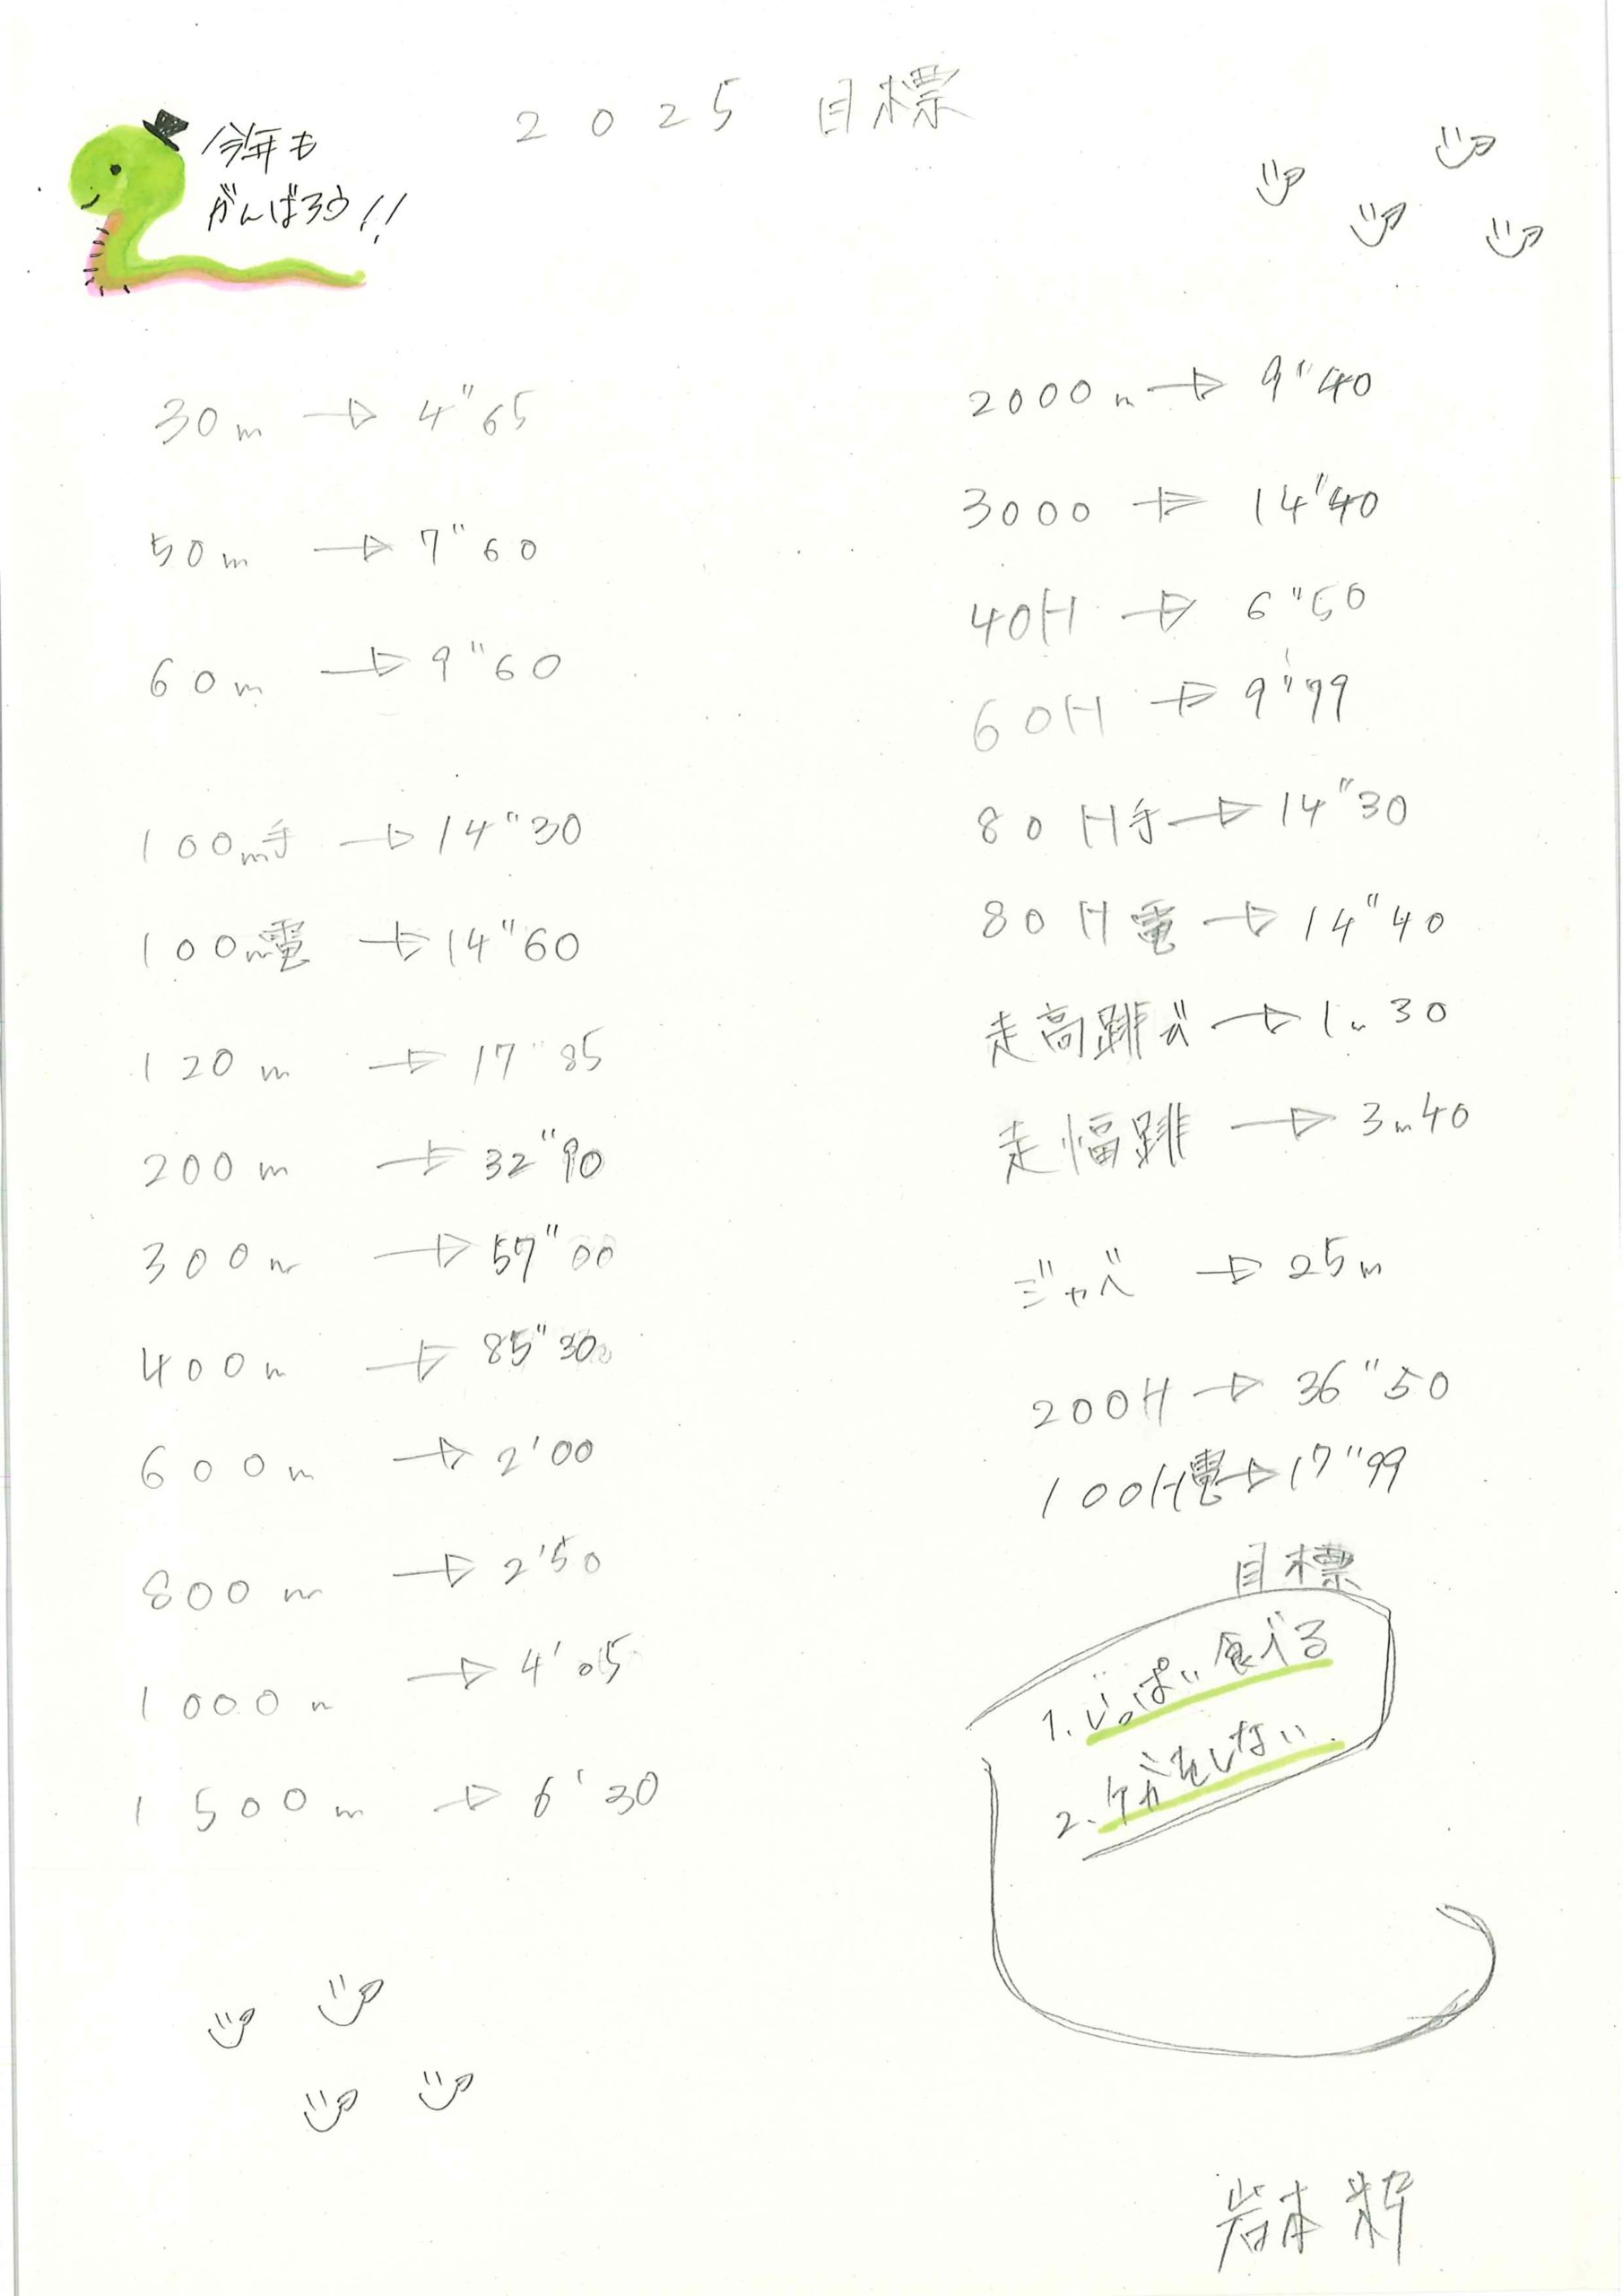 2025 目標
今年も
がんばろう!!
30m → 4"65
50m → 7"60
60m → 9"60
100m手 → 14"30
100m電 → 14"60
120m → 17"85
200m → 32"90
300m → 57"00
400m → 85"30
600m → 2'00
800m → 2'50
1000m → 4'05
1500m → 6'30
2000m → 9"40
3000 → 14'40
40H → 6"50
60H → 9"99
80H手 → 14"30
80H電 → 14"40
走高跳び → 1m30
走幅跳 → 3m40
ジャベ → 25m
200H → 36"50
100H電 → 17"99
目標
1. いっぱい食べる
2. ケガをしない
岩本